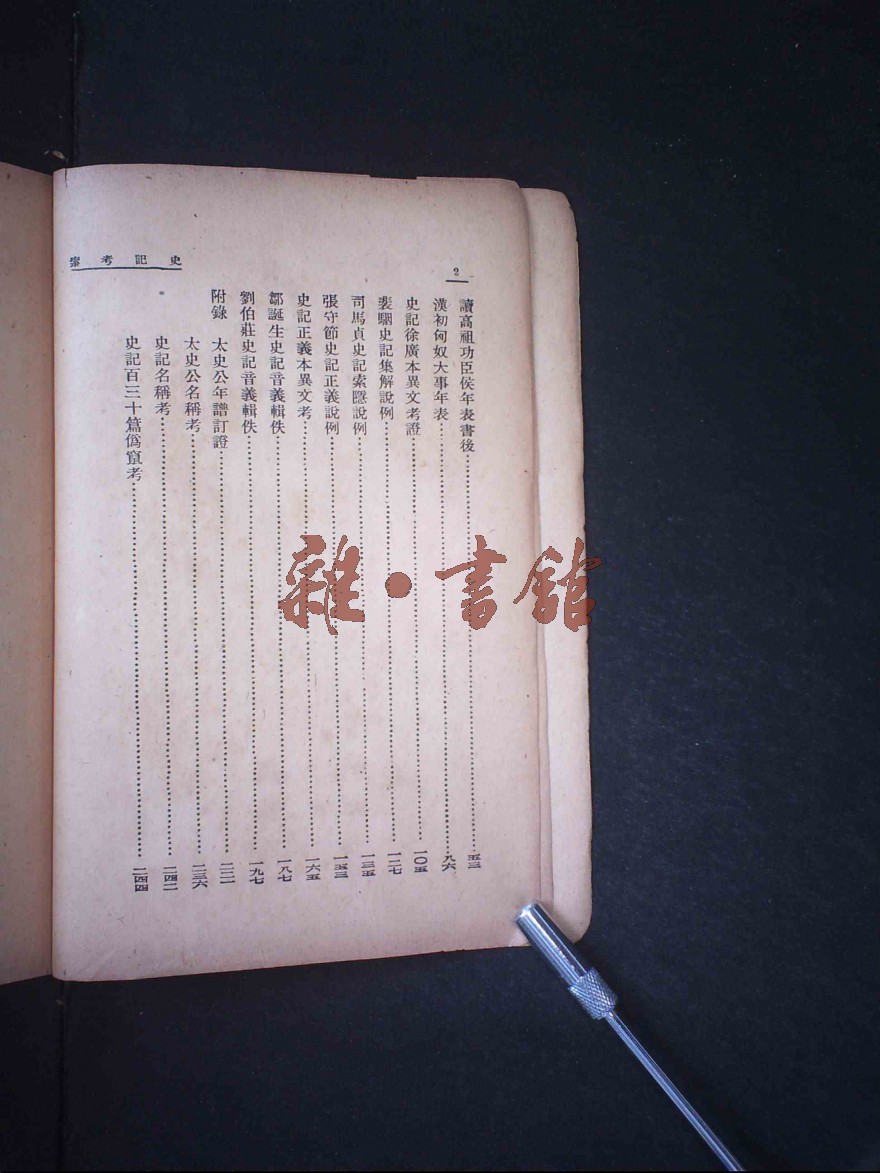 史記考索
2
讀高祖功臣侯年表書後……五三
漢初匈奴大事年表……九六
史記徐廣本異文考證……一〇五
裴駰史記集解說例……一二七
司馬貞史記索隱說例……一三五
張守節史記正義說例……一五三
史記正義本異文考……一六五
鄒誕生史記音義輯佚……一八七
劉伯莊史記音義輯佚……一九七
附錄 太史公年譜訂證……二二一
太史公名稱考……二三六
史記名稱考……二四二
史記百三十篇偽竄考……二四四
雜·書館